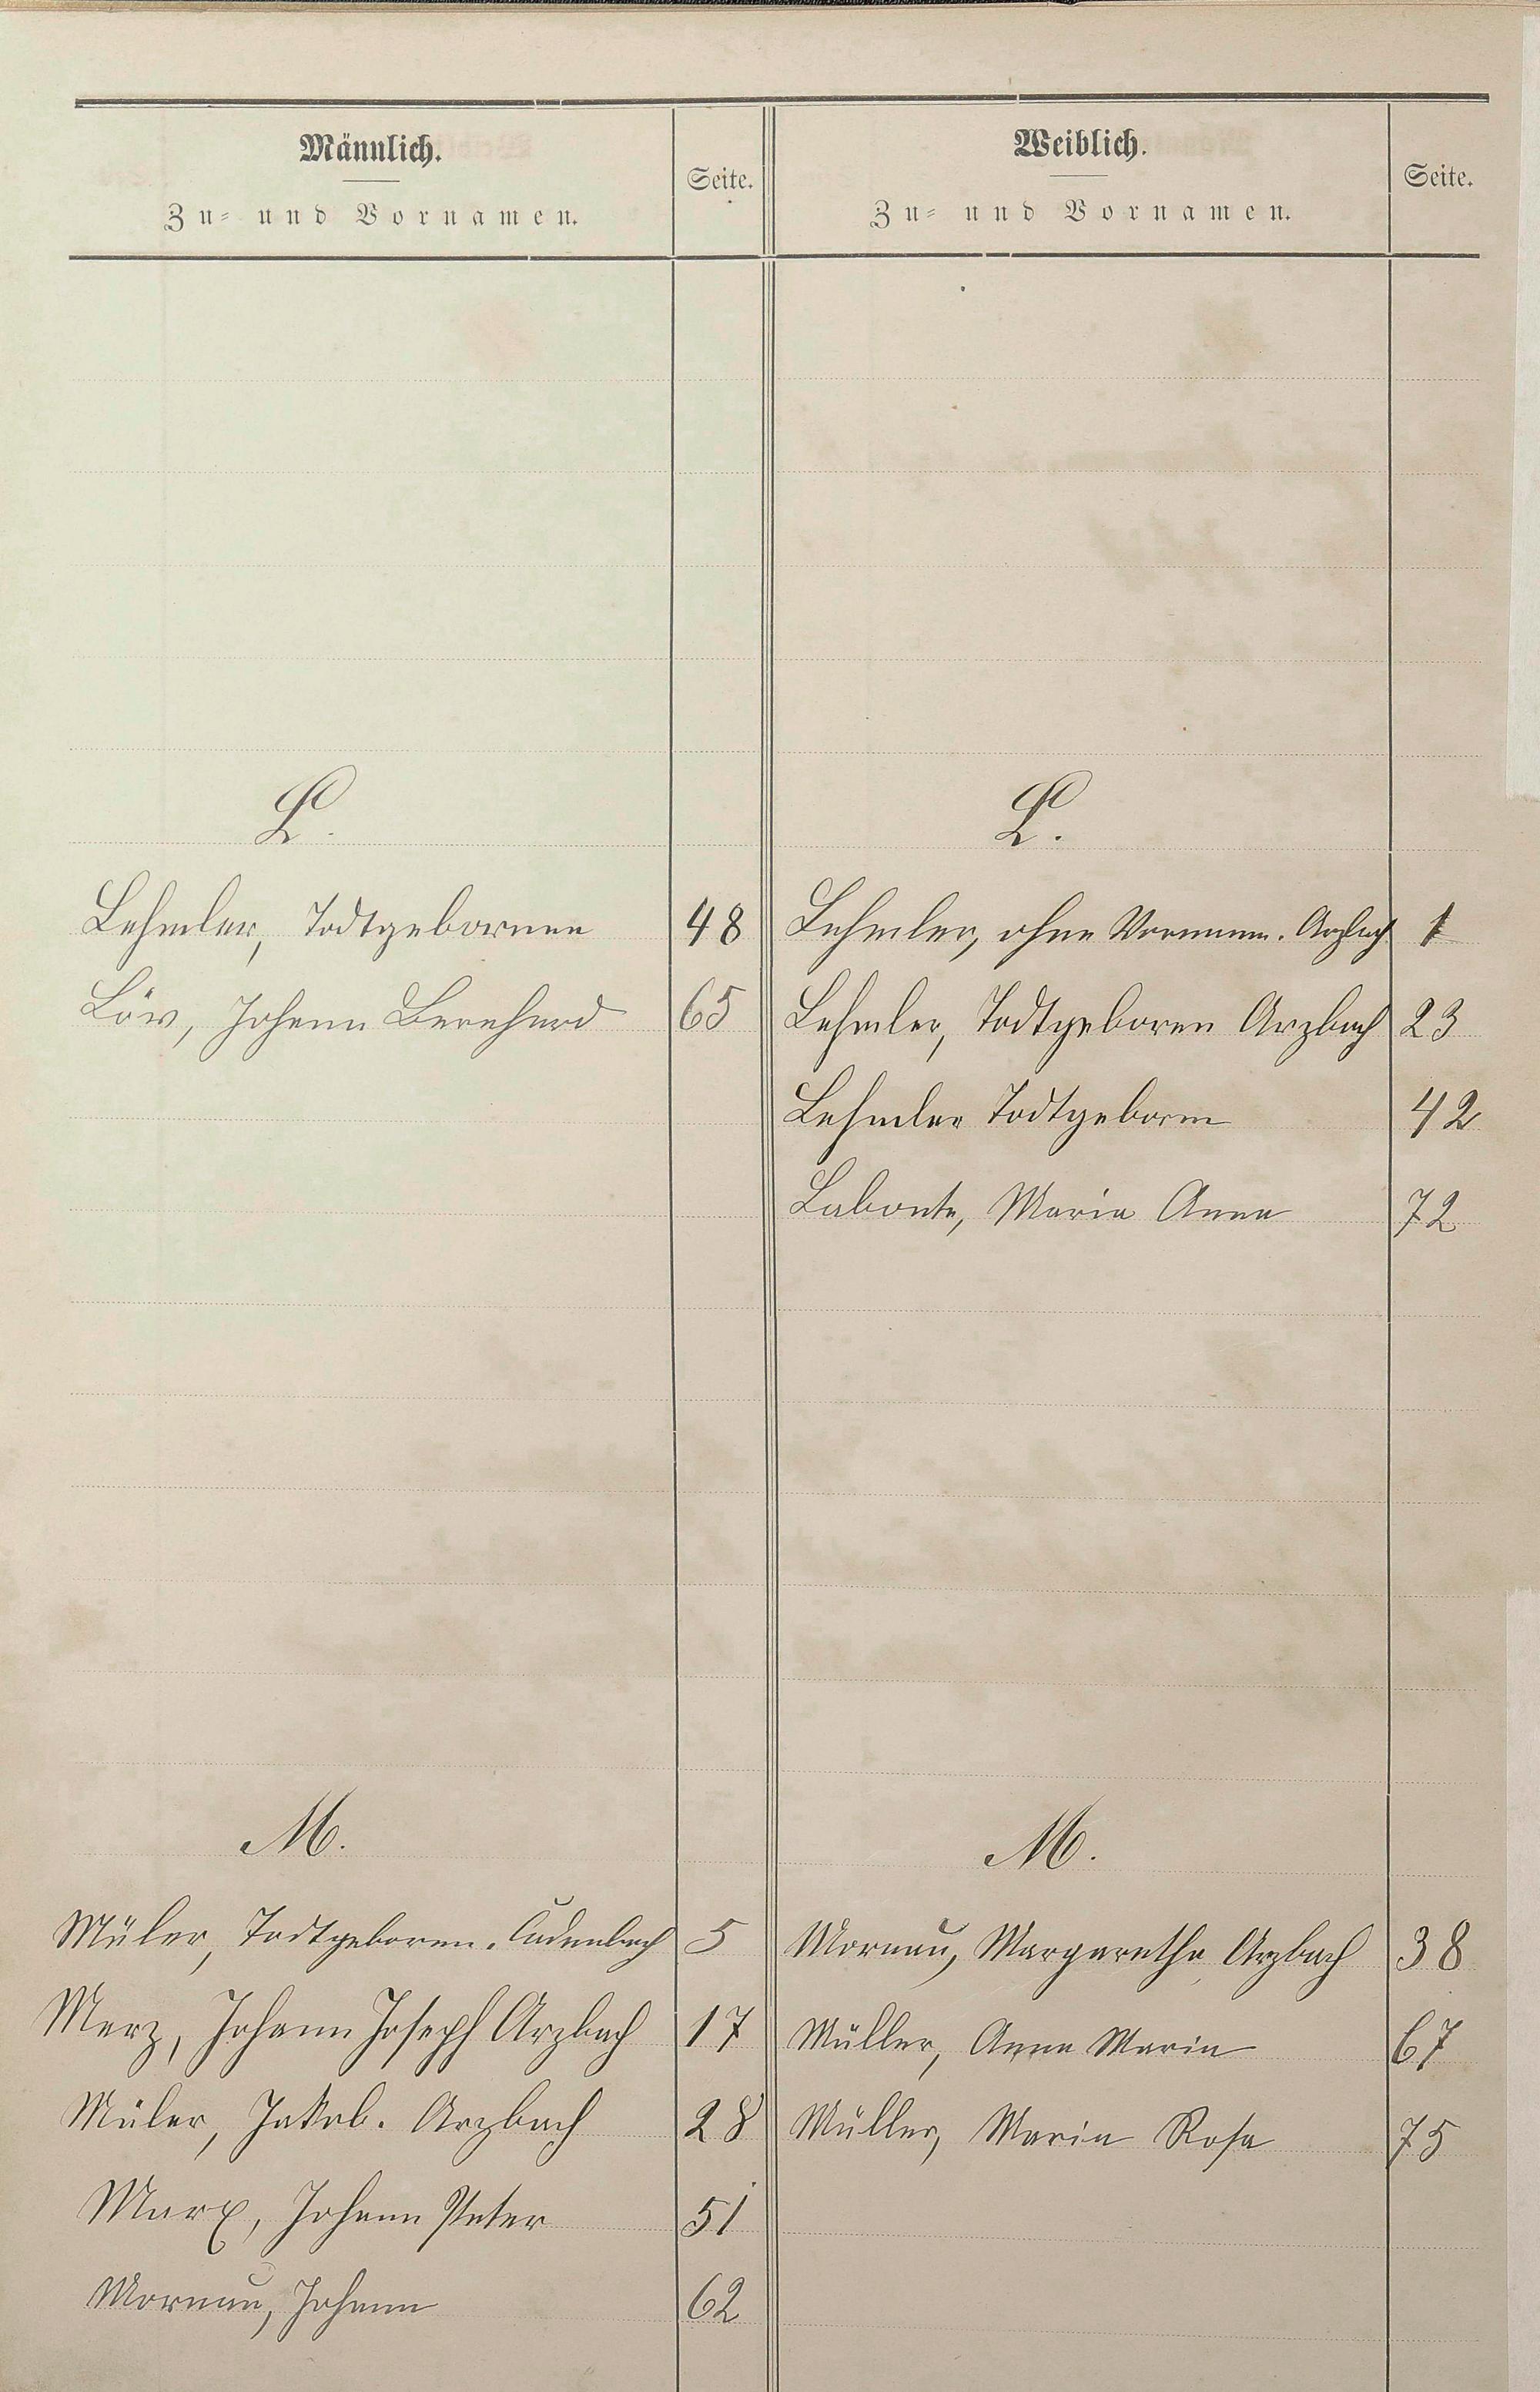 Männlich.
Zu- und Vornamen.
Seite.
Weiblich.
Zu- und Vornamen.
Seite.
L.
Lehmler, Todtgebornen 48
Löw, Johann Bernhard 65
L.
Lehmler, ohne Vornamen. Arzbach 1
Lehmler, Todtgeboren Arzbach 23
Lehmler Todtgeboren 42
Labonte, Maria Anna 72
M.
Müler, Todtgeboren. Cadenbach 5
Merz, Johann Joseph Arzbach 17
Müler, Jakob. Arzbach 28
Marx, Johann Peter 51
Mornau, Johann 62
M.
Mornau, Margaretha Arzbach 38
Müller, Anna Maria 67
Müller, Maria Rosa 75